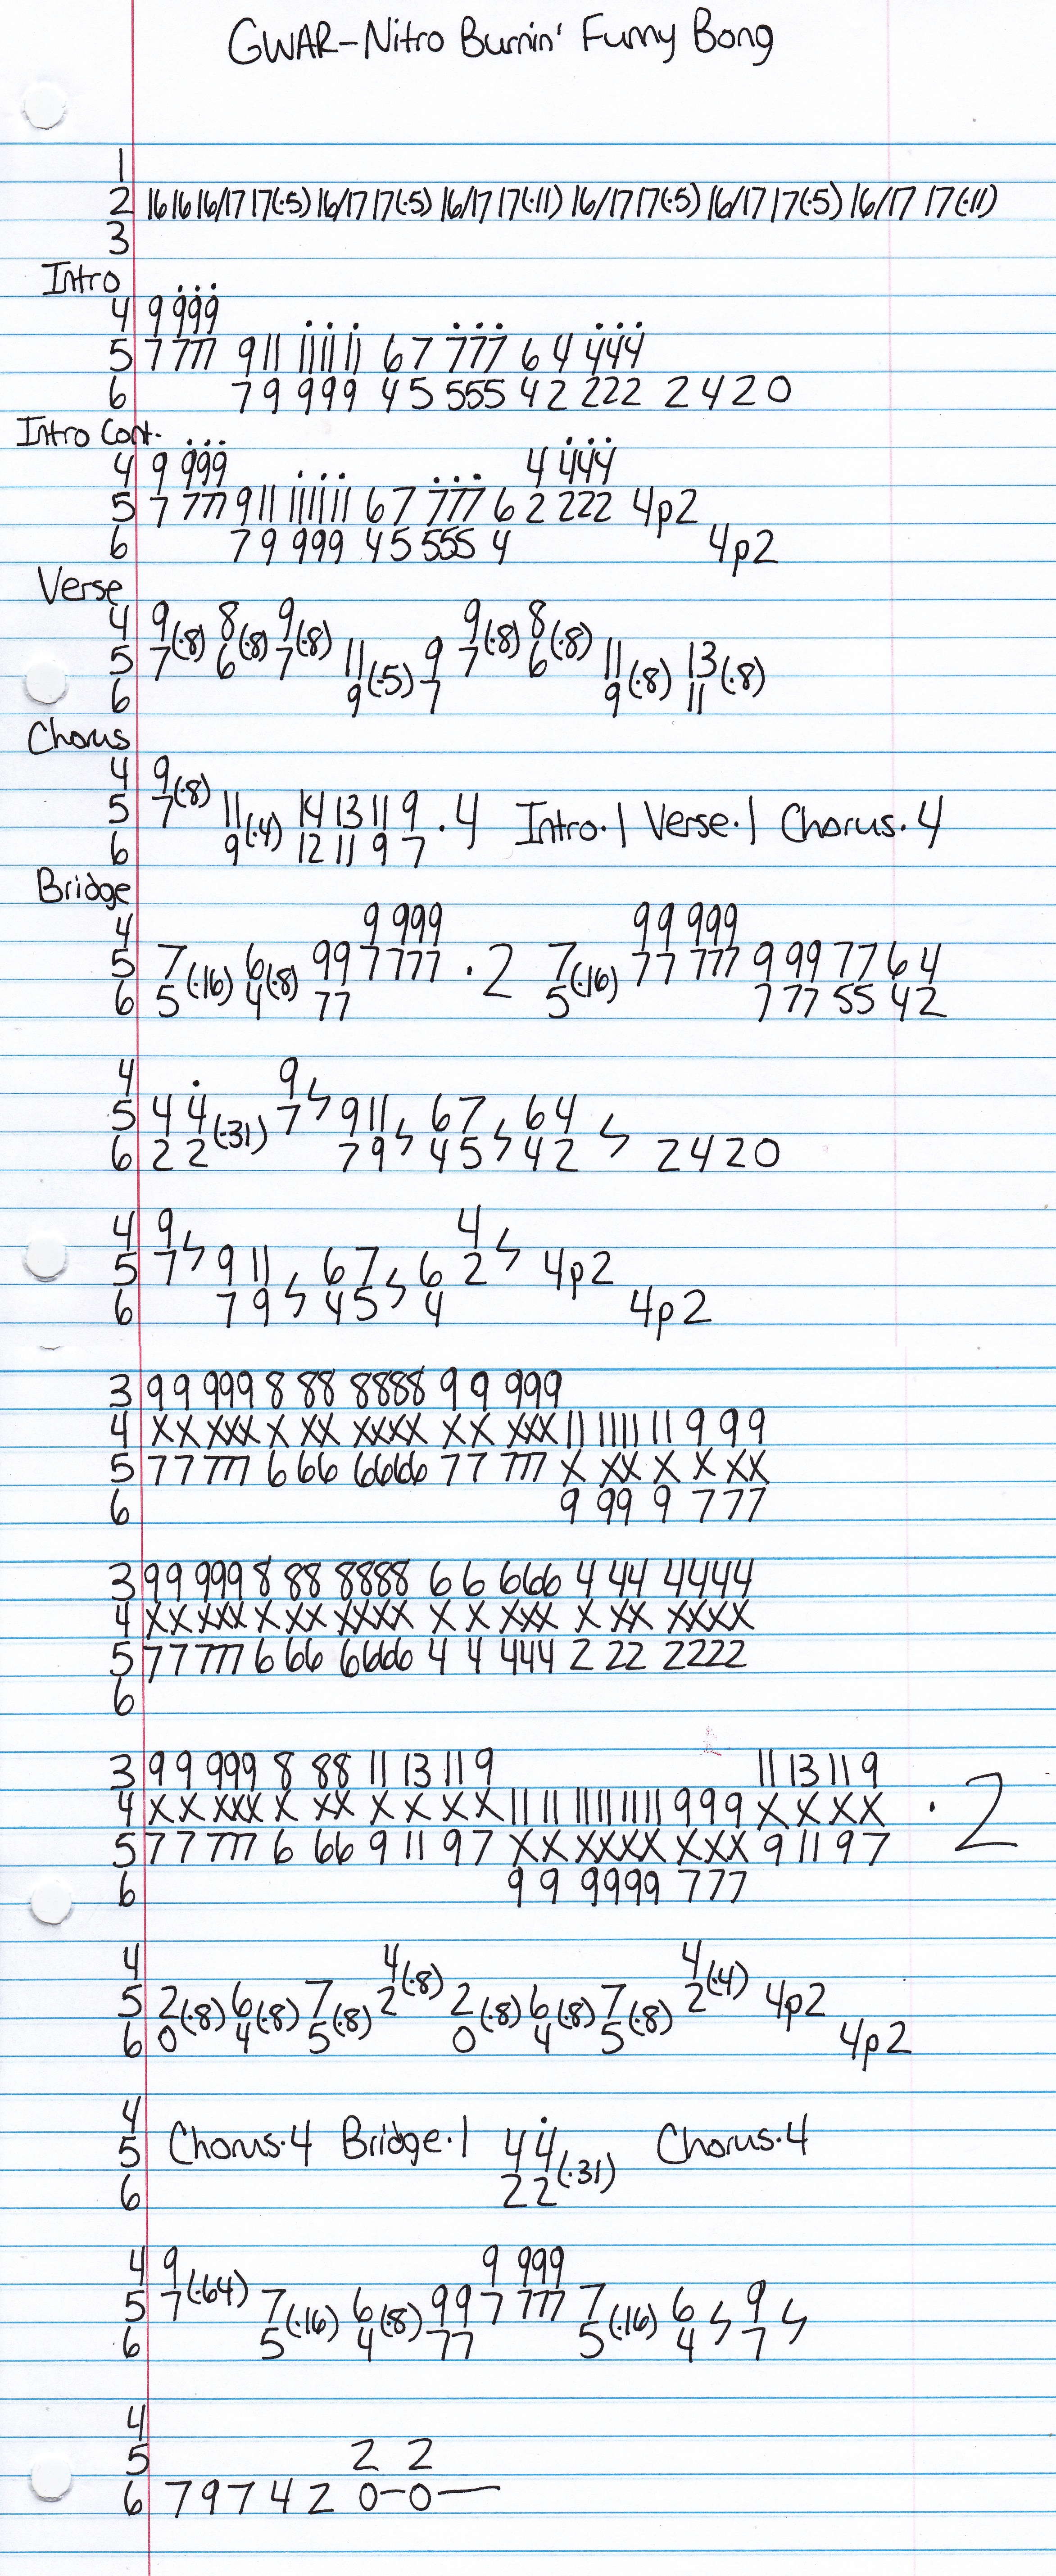 GWAR-Nitro Burnin' Funny Bong
1
2 16 16 16/17 17(·5) 16/17 17(·5) 16/17 17(·11) 16/17 17(·5) 16/17 17(·5) 16/17 17(·11)
3
Intro
4 9 999
5 7 777 9 11 11 11 11 6 7 777 6 4 444
6 7 9 999 4 5 555 4 2 222 2 4 2 0
Intro Cont.
4 9 999 4 444
5 7 777 9 11 11 11 11 6 7 777 6 2 222 4p2
6 7 9 999 4 5 555 4 4p2
Verse
4 9 8 9 9 8
5 7(·8) 6(·8) 7(·8) 11 9 7(·8) 6(·8) 11 13
6 9(·5) 7 9(·8) 11(·8)
Chorus
4 9
5 7(·8) 11 14 13 11 9 ·4 Intro·1 Verse·1 Chorus·4
6 9(·4) 12 11 9 7
Bridge
4 9 999 99 999
5 7 6 99 7 777 ·2 7 77 777 9 99 77 6 4
6 5(·16) 4(·8) 77 5(·16) 7 77 55 4 2
4 9
5 4 4 7 9 11 6 7 6 4
6 2 2(·31) 7 9 4 5 4 2 2 4 2 0
4 9 4
5 7 9 11 6 7 6 2 4p2
6 7 9 4 5 4 4p2
3 99 999 8 88 8888 99 999
4 XX XXX X XX XXXX XX XXX 11 11 11 11 9 9 9
5 77 777 6 66 6666 77 777 X XX X X XX
6 9 99 9 7 77
3 99 999 8 88 8888 6 6 666 4 44 4444
4 XX XXX X XX XXXX X X XXX X XX XXXX
5 77 777 6 66 6666 4 4 444 2 22 2222
6
3 99 999 8 88 11 13 11 9 11 13 11 9
4 XX XXX X XX X X X X 11 11 11 11 11 11 999 X X X X ·2
5 77 777 6 66 9 11 9 7 XX XXXX XXX 9 11 9 7
6 9 9 9999 777
4 4 4
5 2 6 7 2(·8) 2 6 7 2(·4) 4p2
6 0(·8) 4(·8) 5(·8) 0(·8) 4(·8) 5(·8) 4p2
4
5 Chorus·4 Bridge·1 4 4 Chorus·4
6 2 2(·31)
4 9 9 999
5 7(·64) 7 6 99 7 777 7 6 9
6 5(·16) 4(·8) 77 5(·16) 4 7
4
5 2 2
6 7 9 7 4 2 0-0-